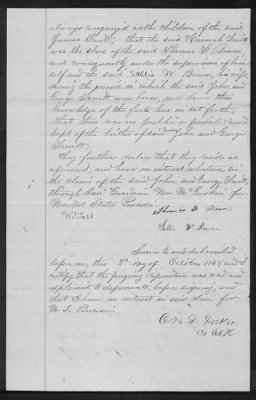 always recognized as the children of the said
James Shults, that the said Hannah Shults
was the slave of the said Thomas F. Bowen
and consequently under the supervision of him
self and the said W. Bowen, his wife,
during the period in which the said John and
George were born, and have this
knowledge of the facts herein set forth,
that there was no public or private record
kept of the births of said John and George
They further declare that they reside as
aforesaid, and have no interest whatever, in
the claim of the said John and George,
through their Guardian Wm for
United States Pension.
Witness
W Bowen
Sworn to and subscribed
before me, this 5th day of October 1868 and I
certify that the foregoing deposition was read and
explained to deponents, before signing, and
that I have no interest in said claim for
U. S. Pension.
Clk